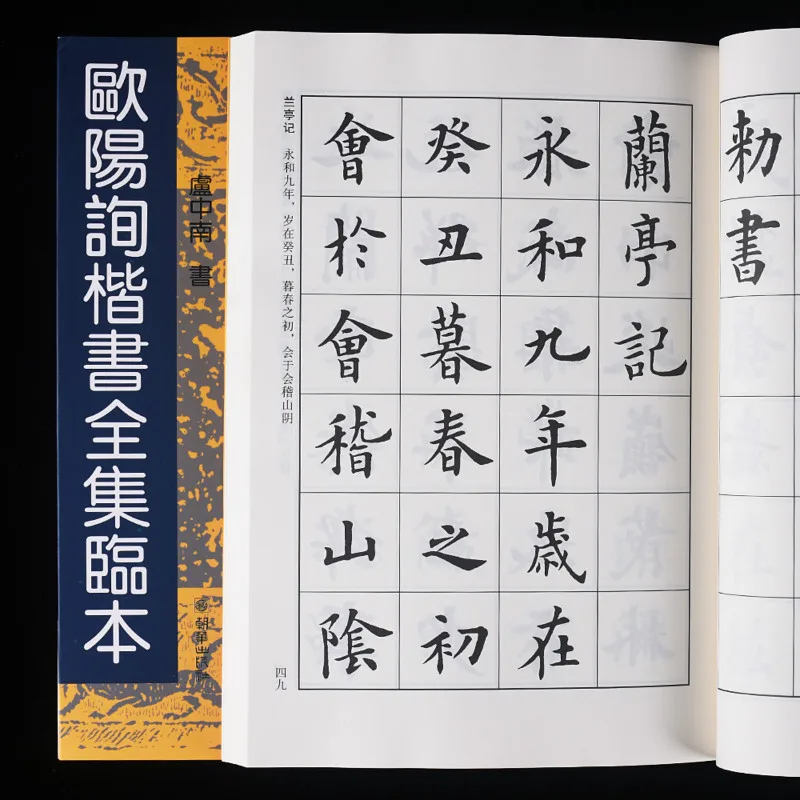 歐陽詢楷書全集臨本
盧中南 書
朝華出版社
勅書
蘭亭記
永和九年歲在
癸丑暮春之初
會於會稽山陰
兰亭记 永和九年，岁在癸丑，暮春之初，会于会稽山阴
四九